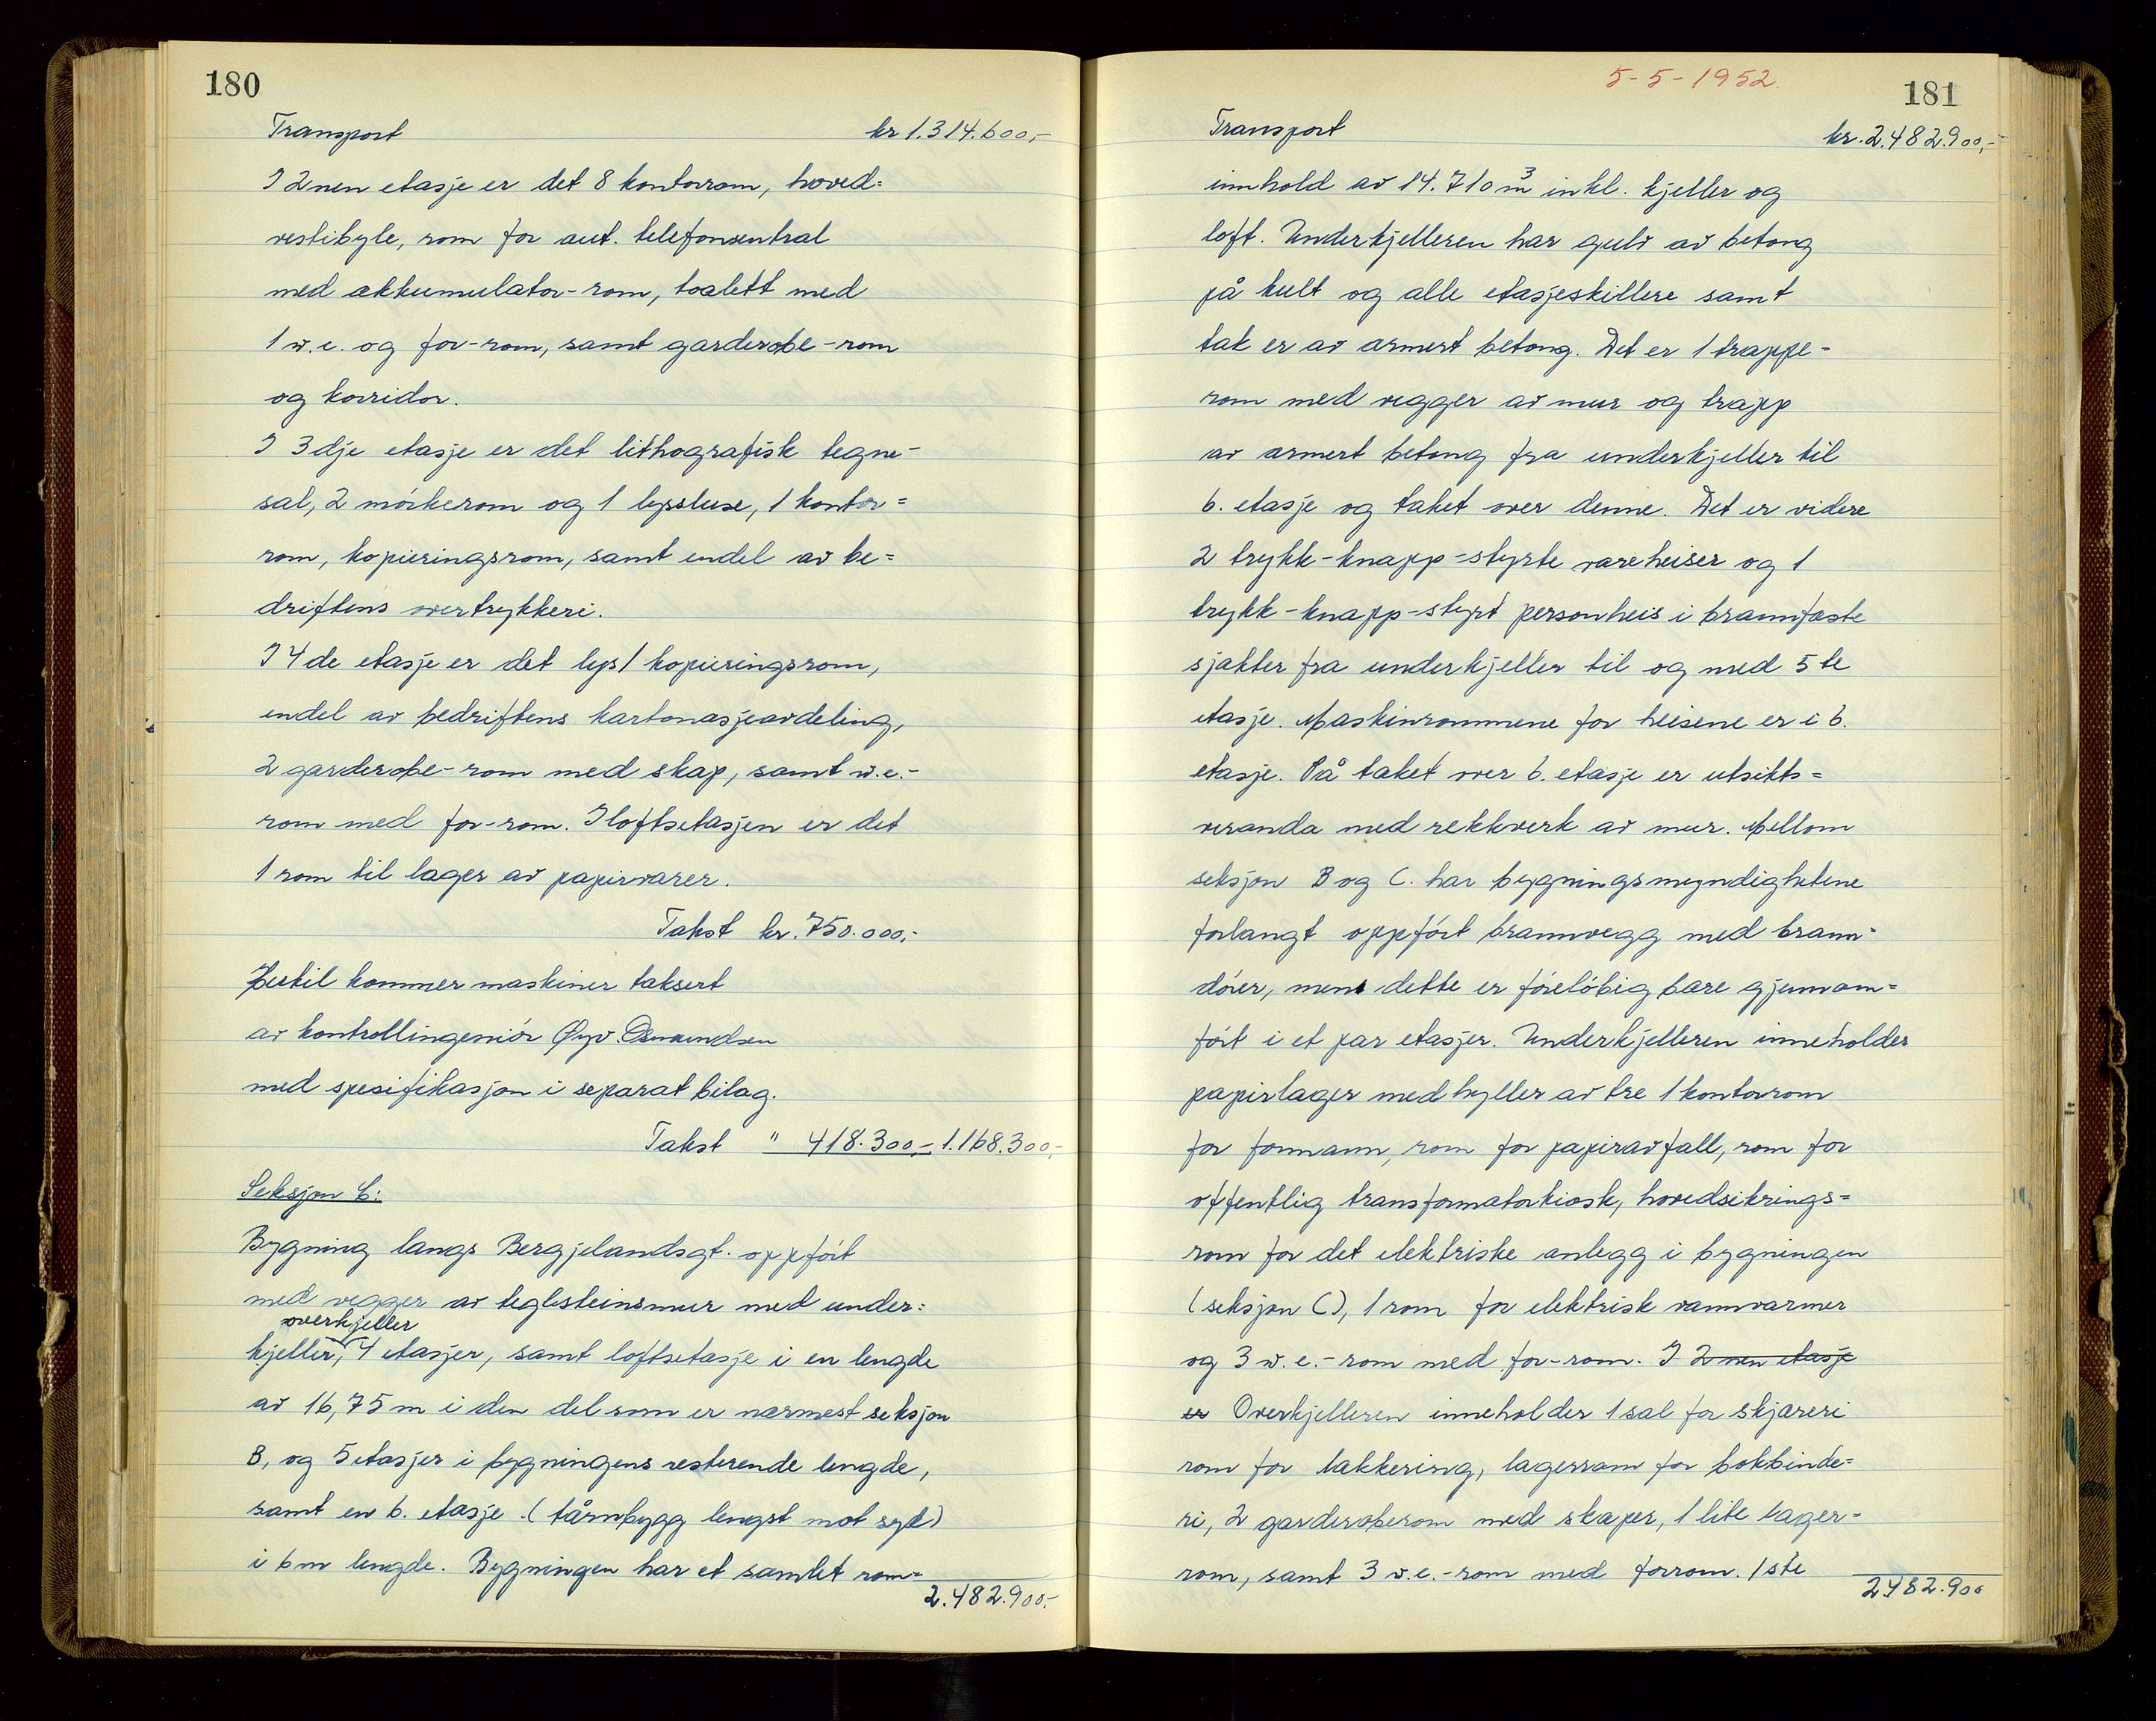 180
Transport kr 1.314.600,-
I 2nen etasje er det 8 kontorrom, hoved=
vestibyle, rom for aut. telefonsentral
med akkumulator-rom, toalett med
1 w.c. og for-rom, samt garderobe-rom
og korridor.
I 3dje etasje er det lithografisk tegne-
sal, 2 mörkerom og 1 lyssluse, 1 kontor=
rom, kopieringsrom, samt endel av be=
driftens overtrykkeri.
I 4de etasje er det lys/kopieringsrom,
endel av bedriftens kartonasjeavdeling,
2 garderobe-rom med skap, samt w.c.-
rom med for-rom. I loftsetasjen er det
1 rom til lager av papirvarer.
Takst kr. 750.000,-
Hertil kommer maskiner taksert
av kontrollingeniör Øyv. Osmundsen
med spesifikasjon i separat bilag.
Takst " 418.300,- 1.168.300,-
Seksjon C:
Bygning langs Bergjelandsgt. oppfört
med vegger av teglsteinsmur med under=
overkjeller
kjeller, 4 etasjer, samt loftsetasje i en lengde
av 16,75 m i den del som er nærmest seksjon
B, og 5 etasjer i bygningens resterende lengde,
samt en 6. etasje (tårnbygg lengst mot syd)
i 6 m lengde. Bygningen har et samlet rom=
2.482.900.-
5-5-1952.
181
Transport kr. 2.482.900,-
innhold av 14.710 m³ inkl. kjeller og
loft. Underkjelleren har gulv av betong
på kult og alle etasjeskillere samt
tak er av armert betong. Det er 1 trappe-
rom med vegger av mur og trapp
av armert betong fra underkjeller til
6. etasje og taket over denne. Det er videre
2 trykk-knapp-styrte vareheiser og 1
trykk-knapp-styrt personheis i brannfaste
sjakter fra underkjeller til og med 5te
etasje. Maskinrommene for heisene er i 6.
etasje. På taket over 6. etasje er utsikts=
veranda med rekkverk av mur. Mellom
seksjon B og C. har bygningsmyndighetene
forlangt oppfört brannvegg med brann=
dörer, men dette er föreløbig bare gjennom=
fört i et par etasjer. Underkjelleren inneholder
papirlager med hyller av tre 1 kontorrom
for formann, rom for papiravfall, rom for
offentlig transformatorkiosk, hovedsikrings=
rom for det elektriske anlegg i bygningen
(seksjon C), 1 rom for elektrisk vannvarmer
og 3 w.c.-rom med for-rom. I 2nen etasje
er Overkjelleren inneholder 1 sal for skjæreri
rom for lakkering, lagerrom for bokbinde=
ri, 2 garderoberom med skaper, 1 lite lager-
rom, samt 3 w.c.-rom med forrom. 1ste
2482.900